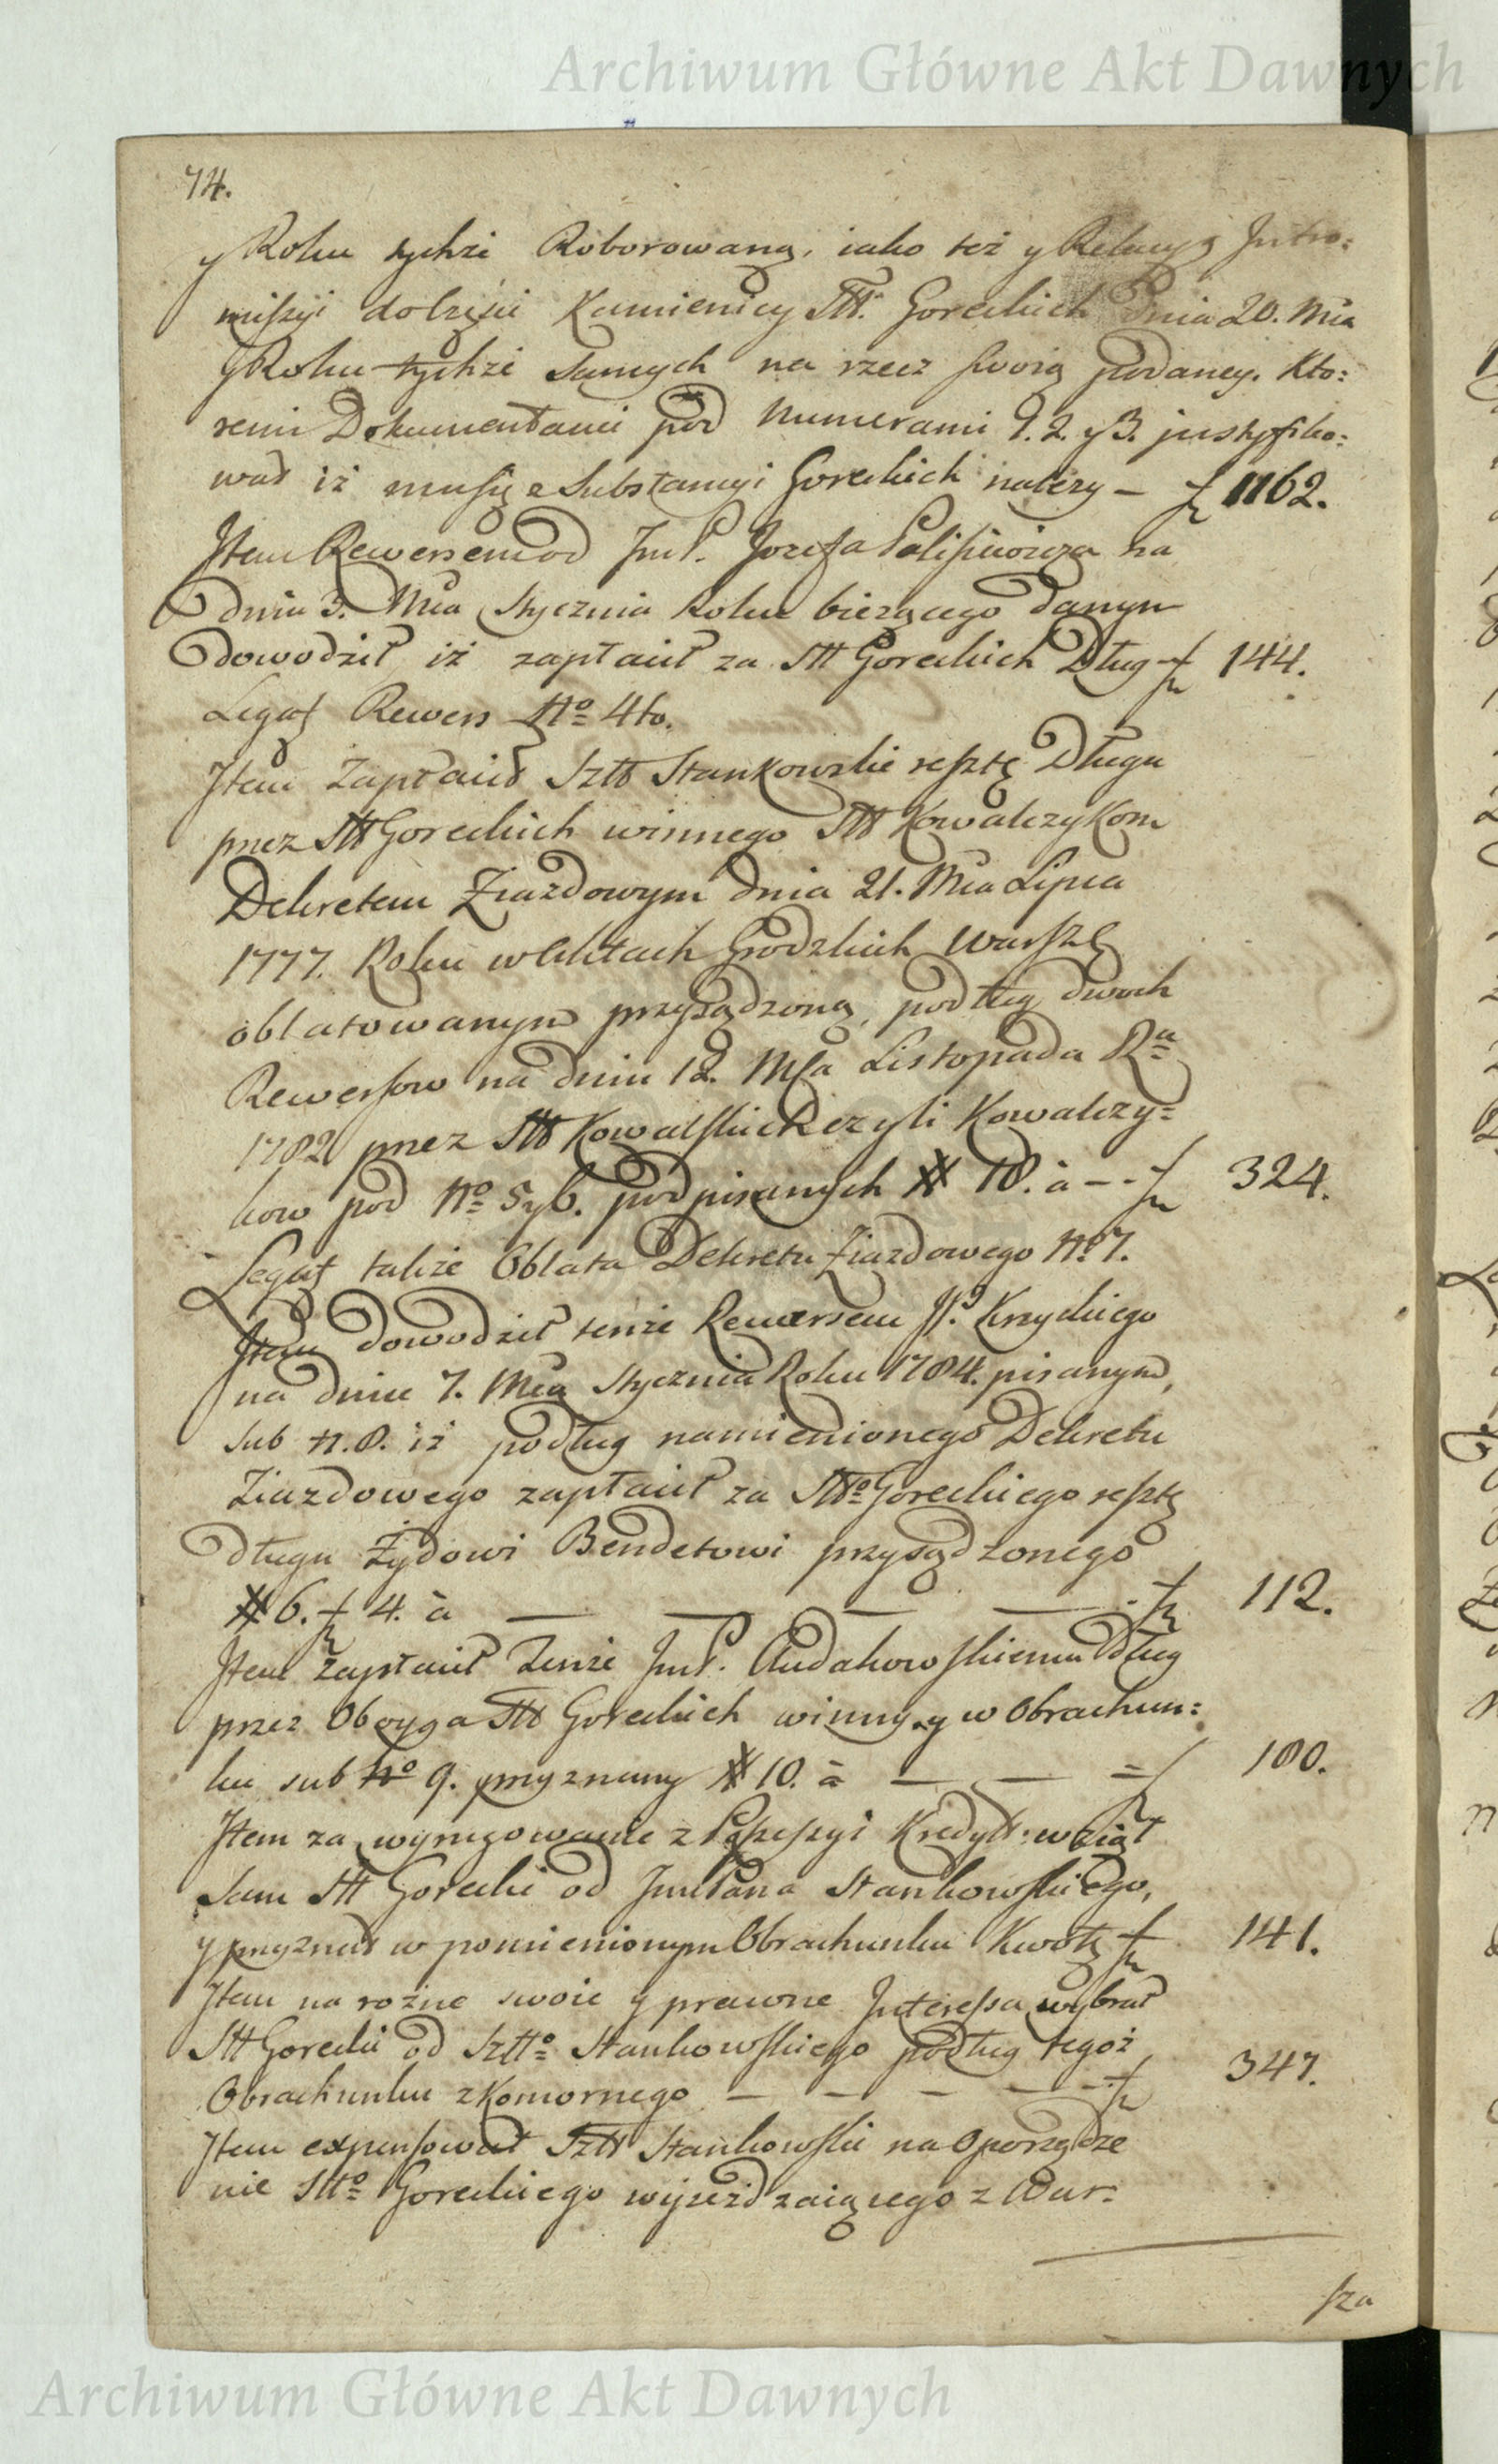 Archiwum Główne Akt Dawnych
74.
y Roku tychże Roborowaną, iako też y Relacyą Intro=
mißyi do teyże Kamienicy Stt. Goreckich Dnia 20. Mca
y Roku tychże samych na rzecz swoią podaney. Kto=
remi Dokumentami pod Numerami 1. 2. y 3. justyfiko=
wał iż mu się z Substancyi Goreckich należy — f 1162.
Item Rewersem od ImP. Jozefa na
dniu 3. Mca Stycznia Roku bieżącego danym
dowodził iż zapłacił za Stt Goreckich Dług f 144.
Legat Rewers No 4to.
Item Zapłacił Sztt Stankowski resztę Długu
przez Stt Goreckich winnego Stt Kowalczykom
Dekretem Ziazdowym dnia 21. Mca Lipca
1777. Roku w Aktach Grodzkich Warsz
oblatowanym przysądzoną, podług dwoch
Rewersow na dniu 12. Mca Listopada Ra
1782 przez Stt Kowalskich czyli Kowalczy=
kow pod No 5 y 6. podpisanych # 18. à — f 324.
Legat takze Oblata Dekretu Ziazdowego No 7.
Item dowodził tenże Rewersem JP. Krzyckiego
na dniu 7. Mca Stycznia Roku 1784. pisanym,
sub n. 8. iż podług namienionego Dekretu
Ziazdowego zapłacił za Stto Goreckiego resztę
długu Żydowi Bendetowi przysądzonego
# 6. f 4. à — — — — f 112.
Item zapłacił Tenże ImP. Rudakowskiemu Dług
przez Oboyga Stt Goreckich winny y w Obrachun=
ku sub No 9. przyznany # 10. à — — = f 180.
Item za wyrugowanie z Poßeßyi Kredytt: wziął
Sam Stt Gorecki od ImPana Stankowskiego,
y przyznał w pomienionym Obrachunku Kwotę f 141.
Item na rożne swoie y prawne Interessa wybrał
Stt Gorecki od Sztto Stankowskiego podług tegoż
Obrachunku z Komornego — — — — f 347.
Item expensował Sztt Stankowski na Oporządze
nie Stto Goreckiego wyieżdzaiącego z War=
sza
Archiwum Główne Akt Dawnych